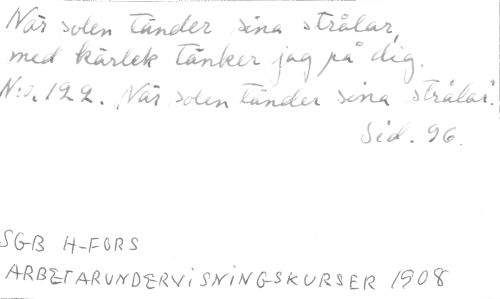 När solen tänder sina strålar,
med kärlek tänker jag på dig.
N:o. 122. När solen tänder sina strålar.
Sid. 96.
SGB H-FORS
ARBETARUNDERVISNINGSKURSER 1908